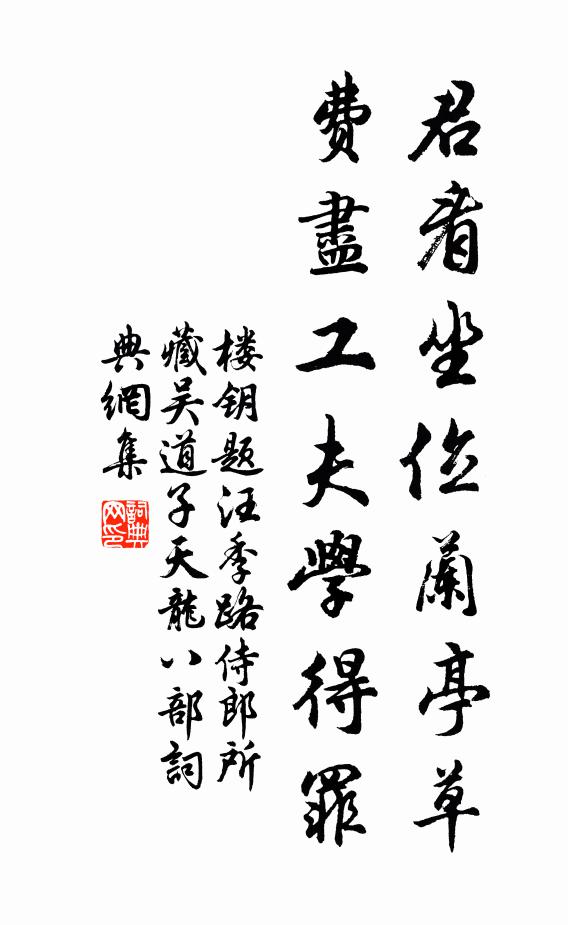 君看坐位蘭亭草
費盡工夫學得罪
楼钥题汪季路侍郎所
藏吴道子天龍八部詞
典網集
詞典网印